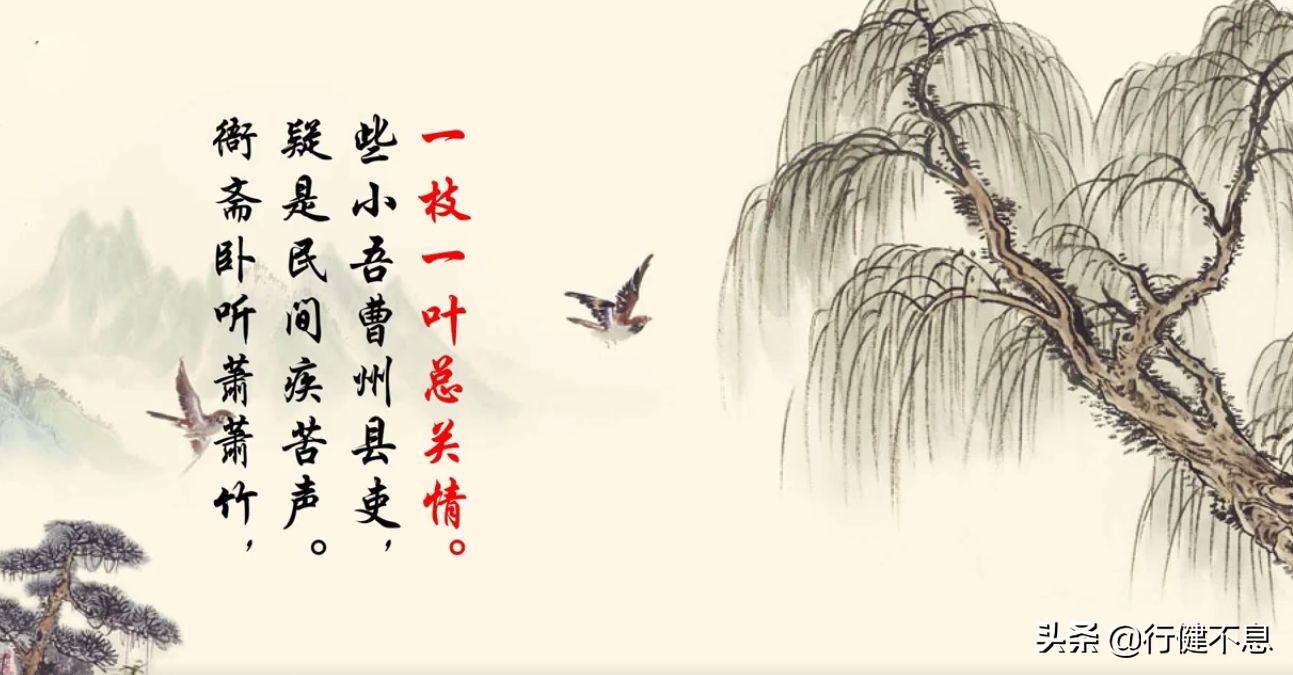 衙斋卧听萧萧竹，
疑是民间疾苦声。
些小吾曹州县吏，
一枝一叶总关情。
头条 @行健不息